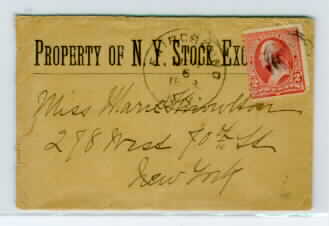 PROPERTY OF N. Y. STOCK EXC
Miss Marie Hamilton
278 West 70th St
New York